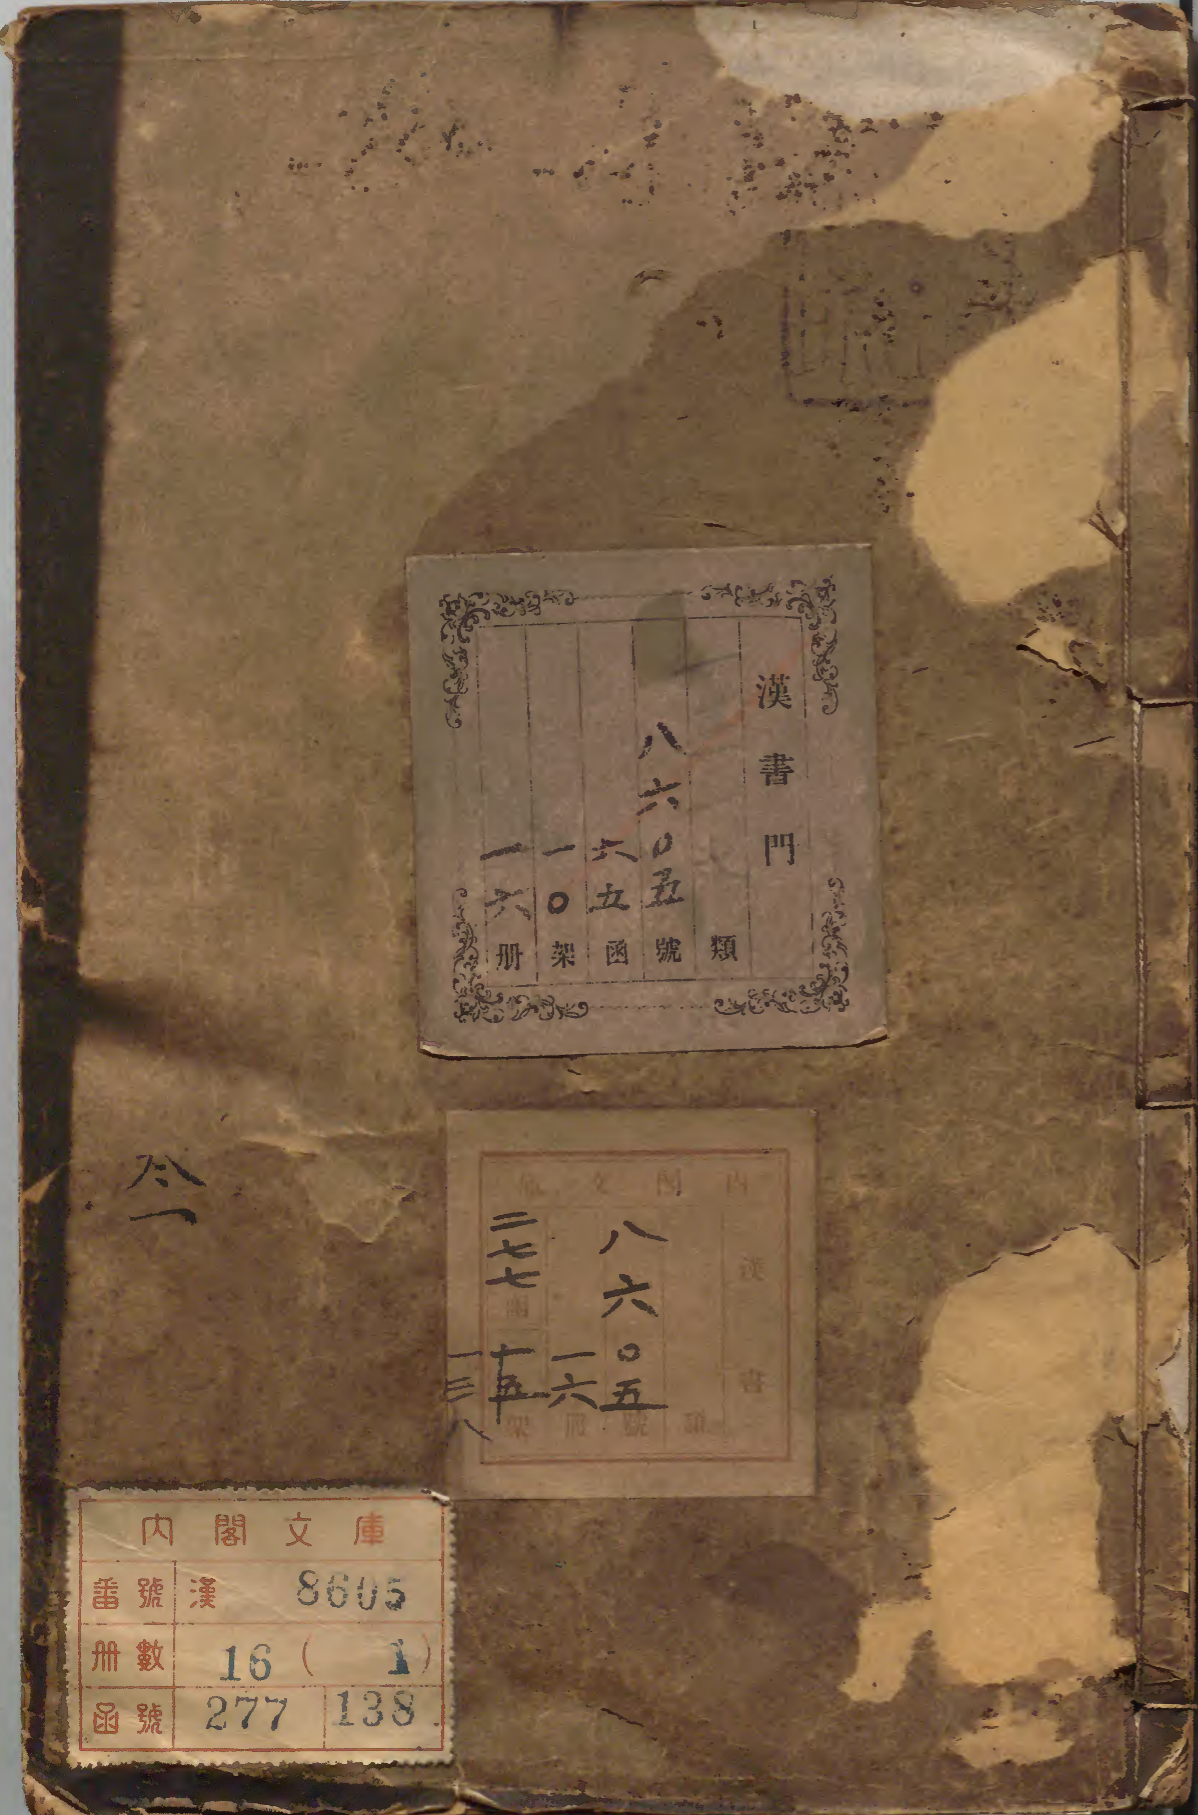 漢書門
類
八六〇五號
六五函
一〇架
一六册
内閣文庫
漢書
類
八六〇五號
一六冊
二七七函
十五架
一三八
内閣文庫
番號 漢 8605
冊數 16 ( 1 )
函號 277 138